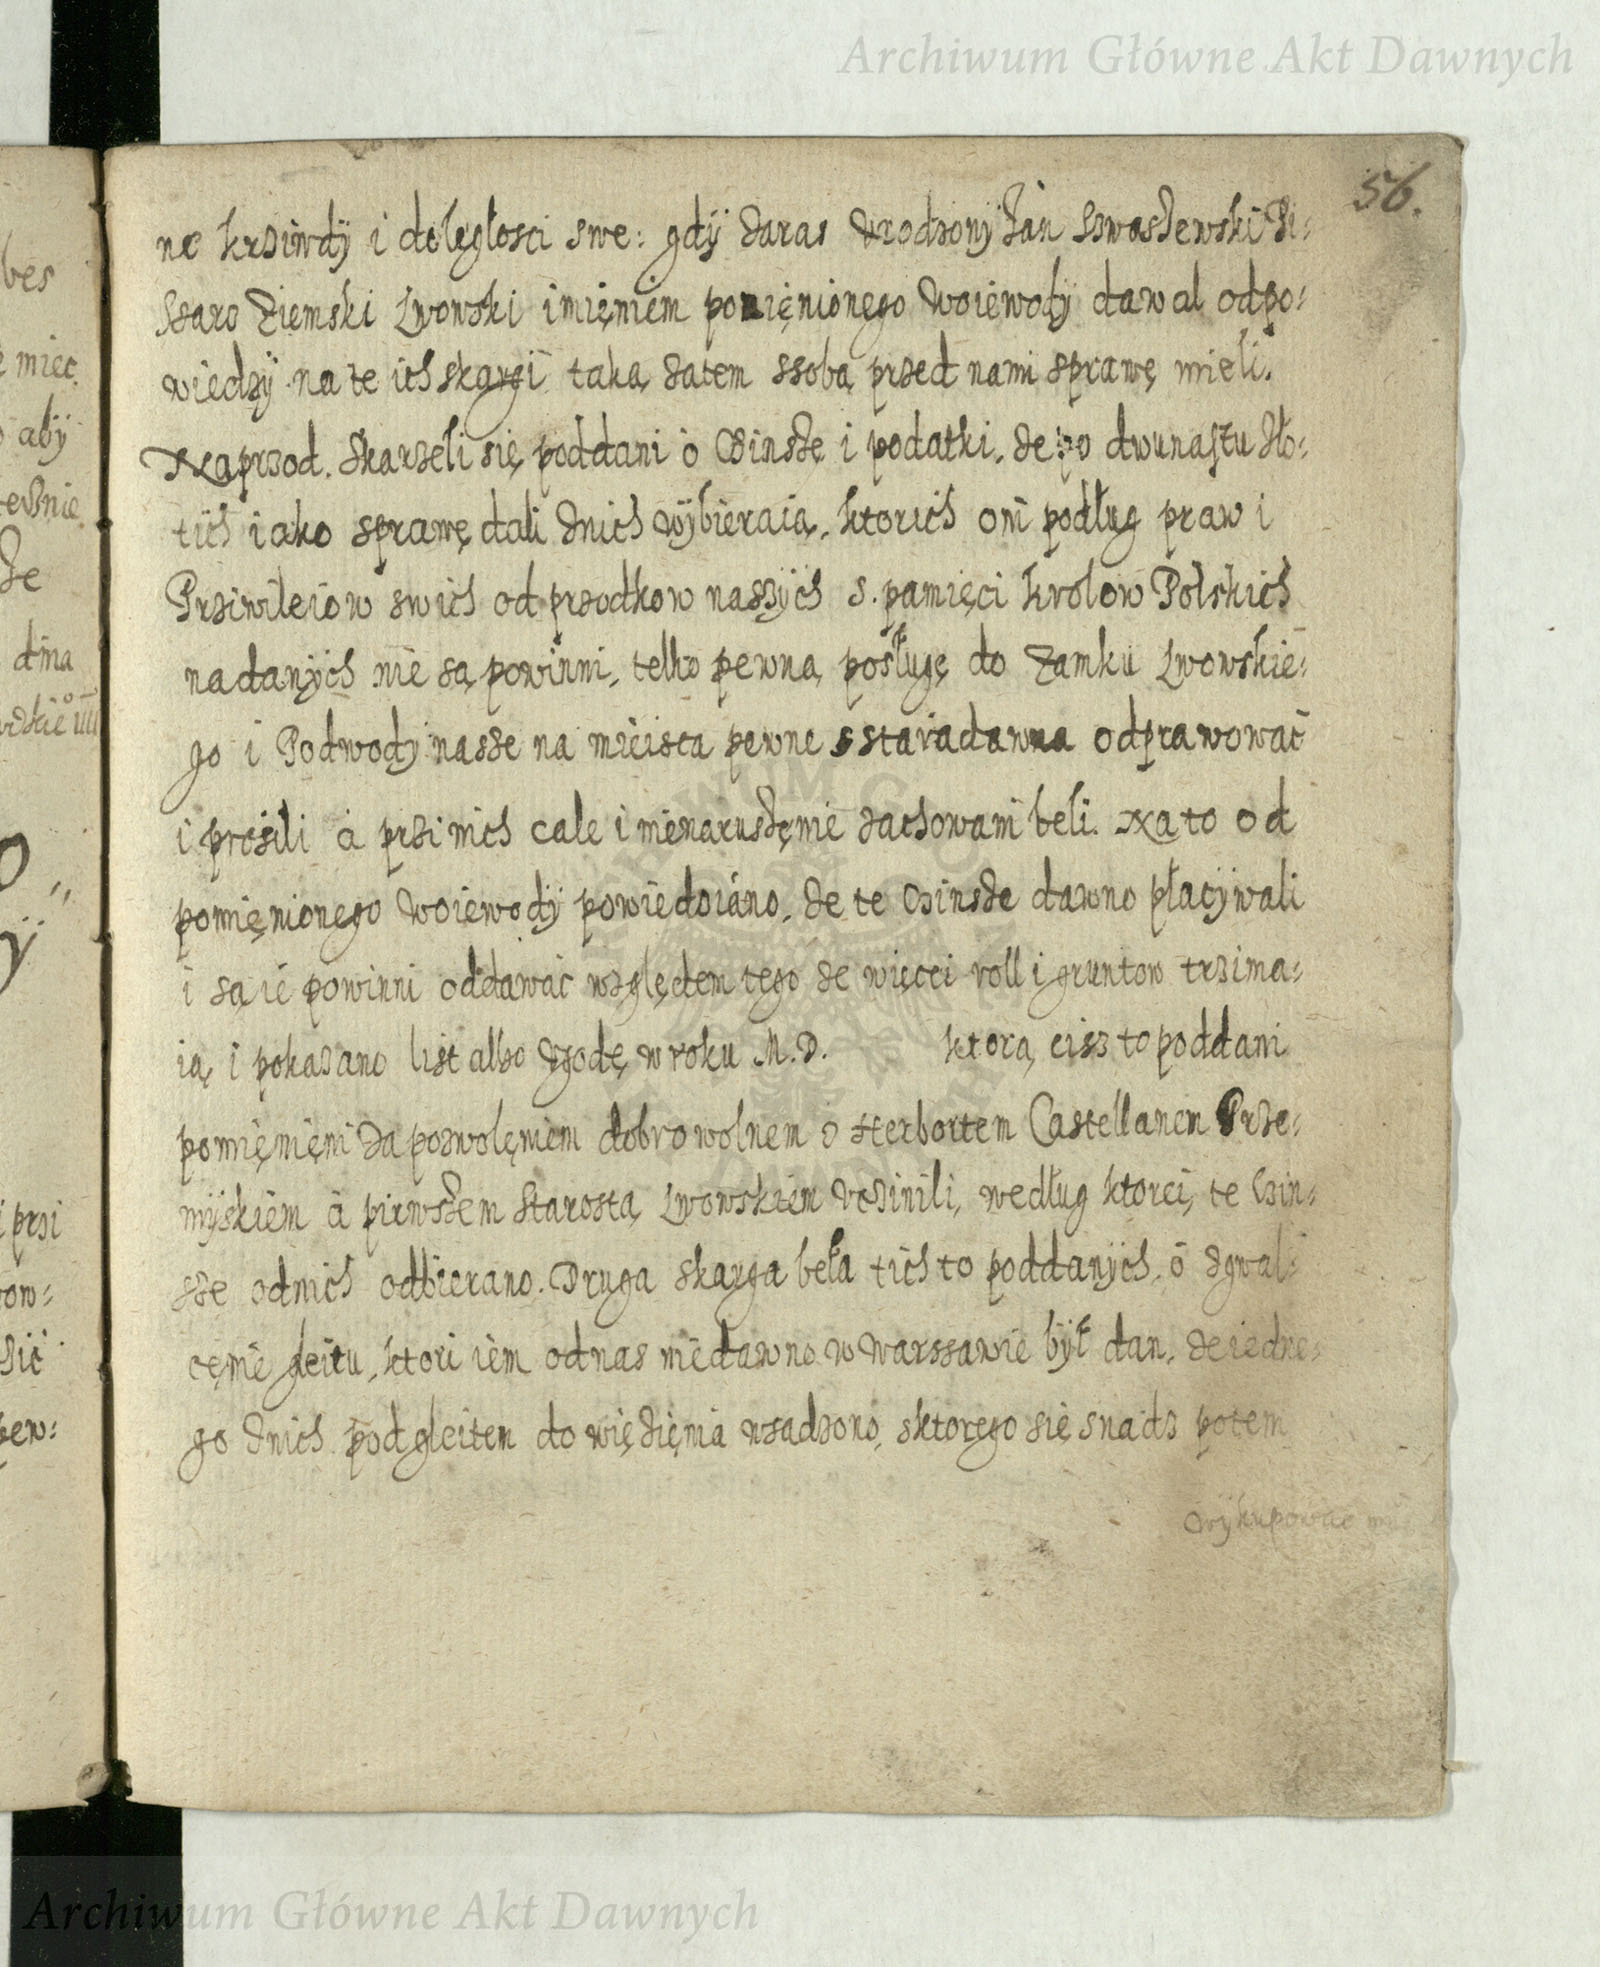 Archiwum Główne Akt Dawnych
56.
ne krziwdÿ i dolęgłosci swe: gdÿ zaraz Urodzonÿ Jan Sswoszewski Pi-
sarz Ziemski Lwowski imięniem pomięnionego woiewodÿ dawal odpo-
wiedzÿ na te ich skargi taką zatem ssobą przed nami sprawę mieli.
Naprzod. Skarzeli się poddani o Czinszę i podatki, ze po dwunastu zło-
tich iako sprawę dali znich wÿbieraią, ktorich oni podług praw i
Prziwileiow swich od przodkow naszÿch s. pamięci Krolow Polskich
nadanÿch nie są powinni, telko pewną posługę do Zamku Lwowskie-
go i Podwodÿ nasze na mieisca pewne sstaradawna odprawować
i prosili a przi nich cale i nienaruszęnie zachowani beli. Na to od
pomięnionego woiewodÿ powiedziáno, ze te czinsze dawno płacÿwali
i są ie powinni oddawać względem tego ze więcei roll i gruntow trzima-
ią, i pokazano list albo zgodę w roku M.D. ktorą cisz to poddani
pomięnięni za pozwolęniem dobrowolnem z Herbortem Castellanem Prze-
mÿskiem a pirwszem Starostą Lwowskiem uczinili, według ktorei, te Czin-
sze odnich odbierano. Druga skarga beła tich to poddanÿch o zgwał-
cęnie gleitu, ktori iem odnas niedawno w Warszawie bÿł dan, ze iedne-
go znich pod gleitem do więzięnia wsadzono, sktorego się snadz potem
wÿkupować
bes
miec
abÿ
ze
dma
przi
ow-
zić
pew-
Archiwum Główne Akt Dawnych